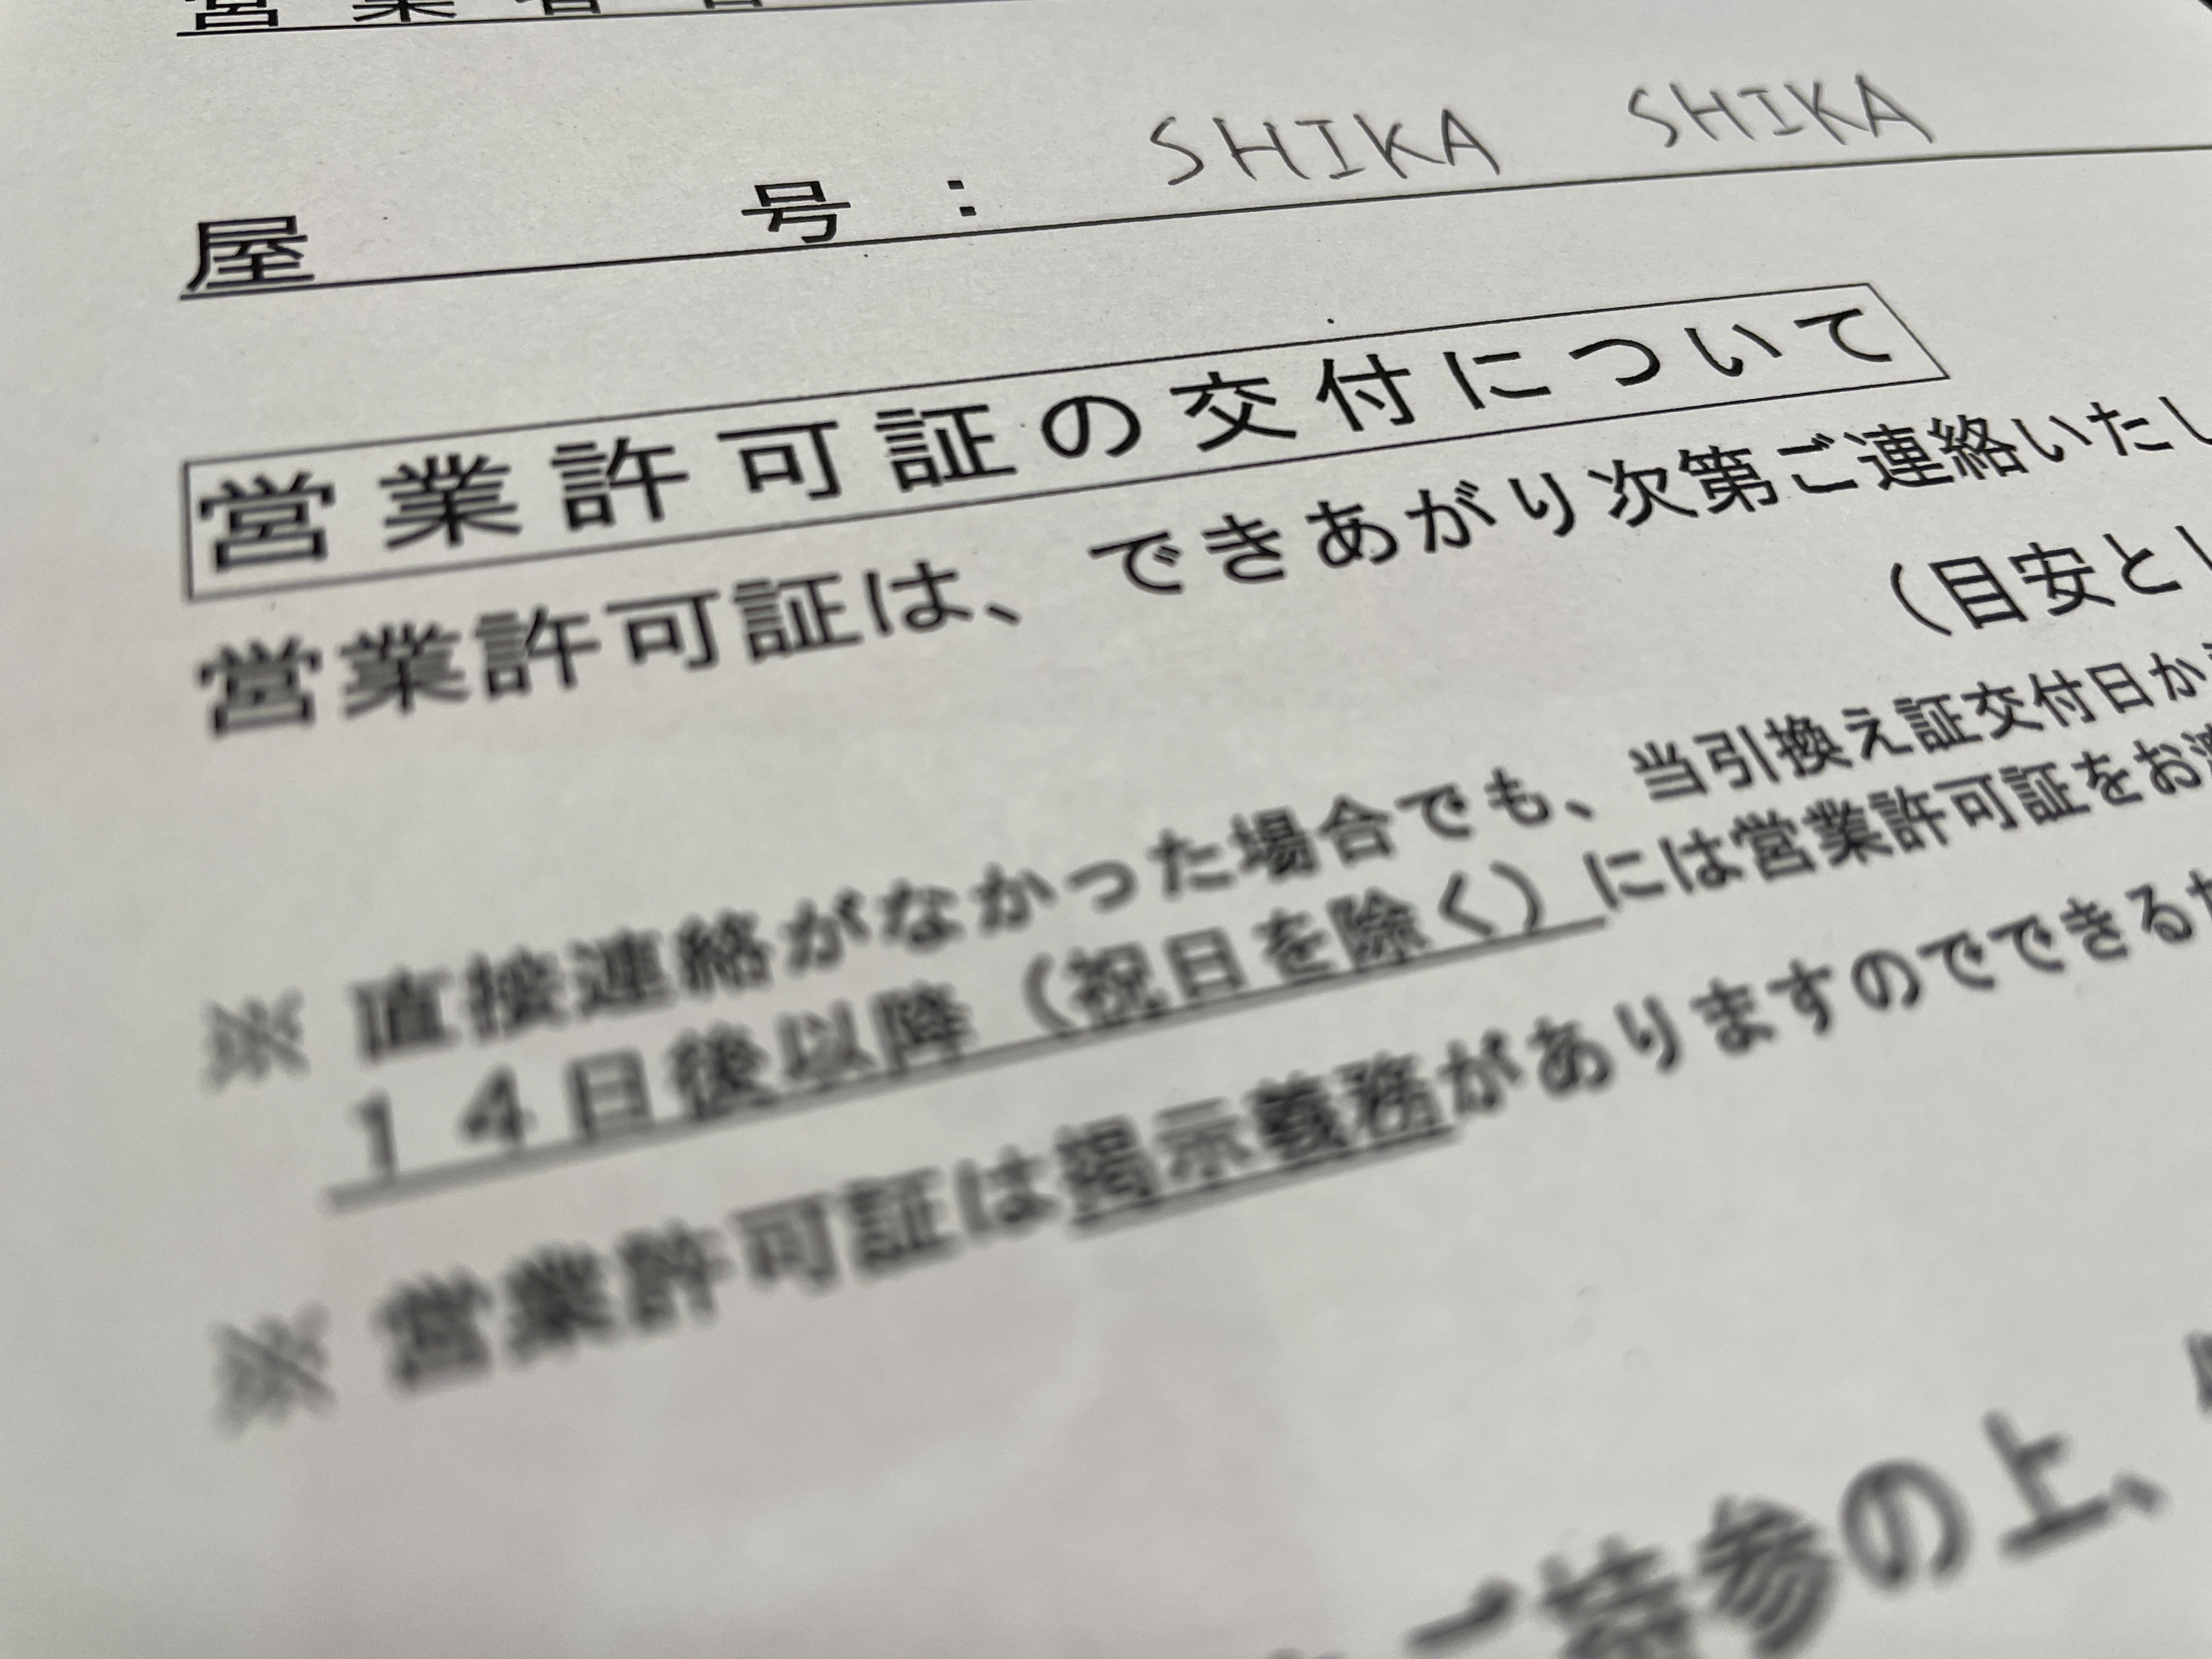 営業者名
屋号： SHIKA SHIKA
営業許可証の交付について
営業許可証は、できあがり次第ご連絡いたし
（目安とし
※ 直接連絡がなかった場合でも、当引換え証交付日か
１４日後以降（祝日を除く）には営業許可証をお渡
※ 営業許可証は掲示義務がありますのでできるだ
ご持参の上、